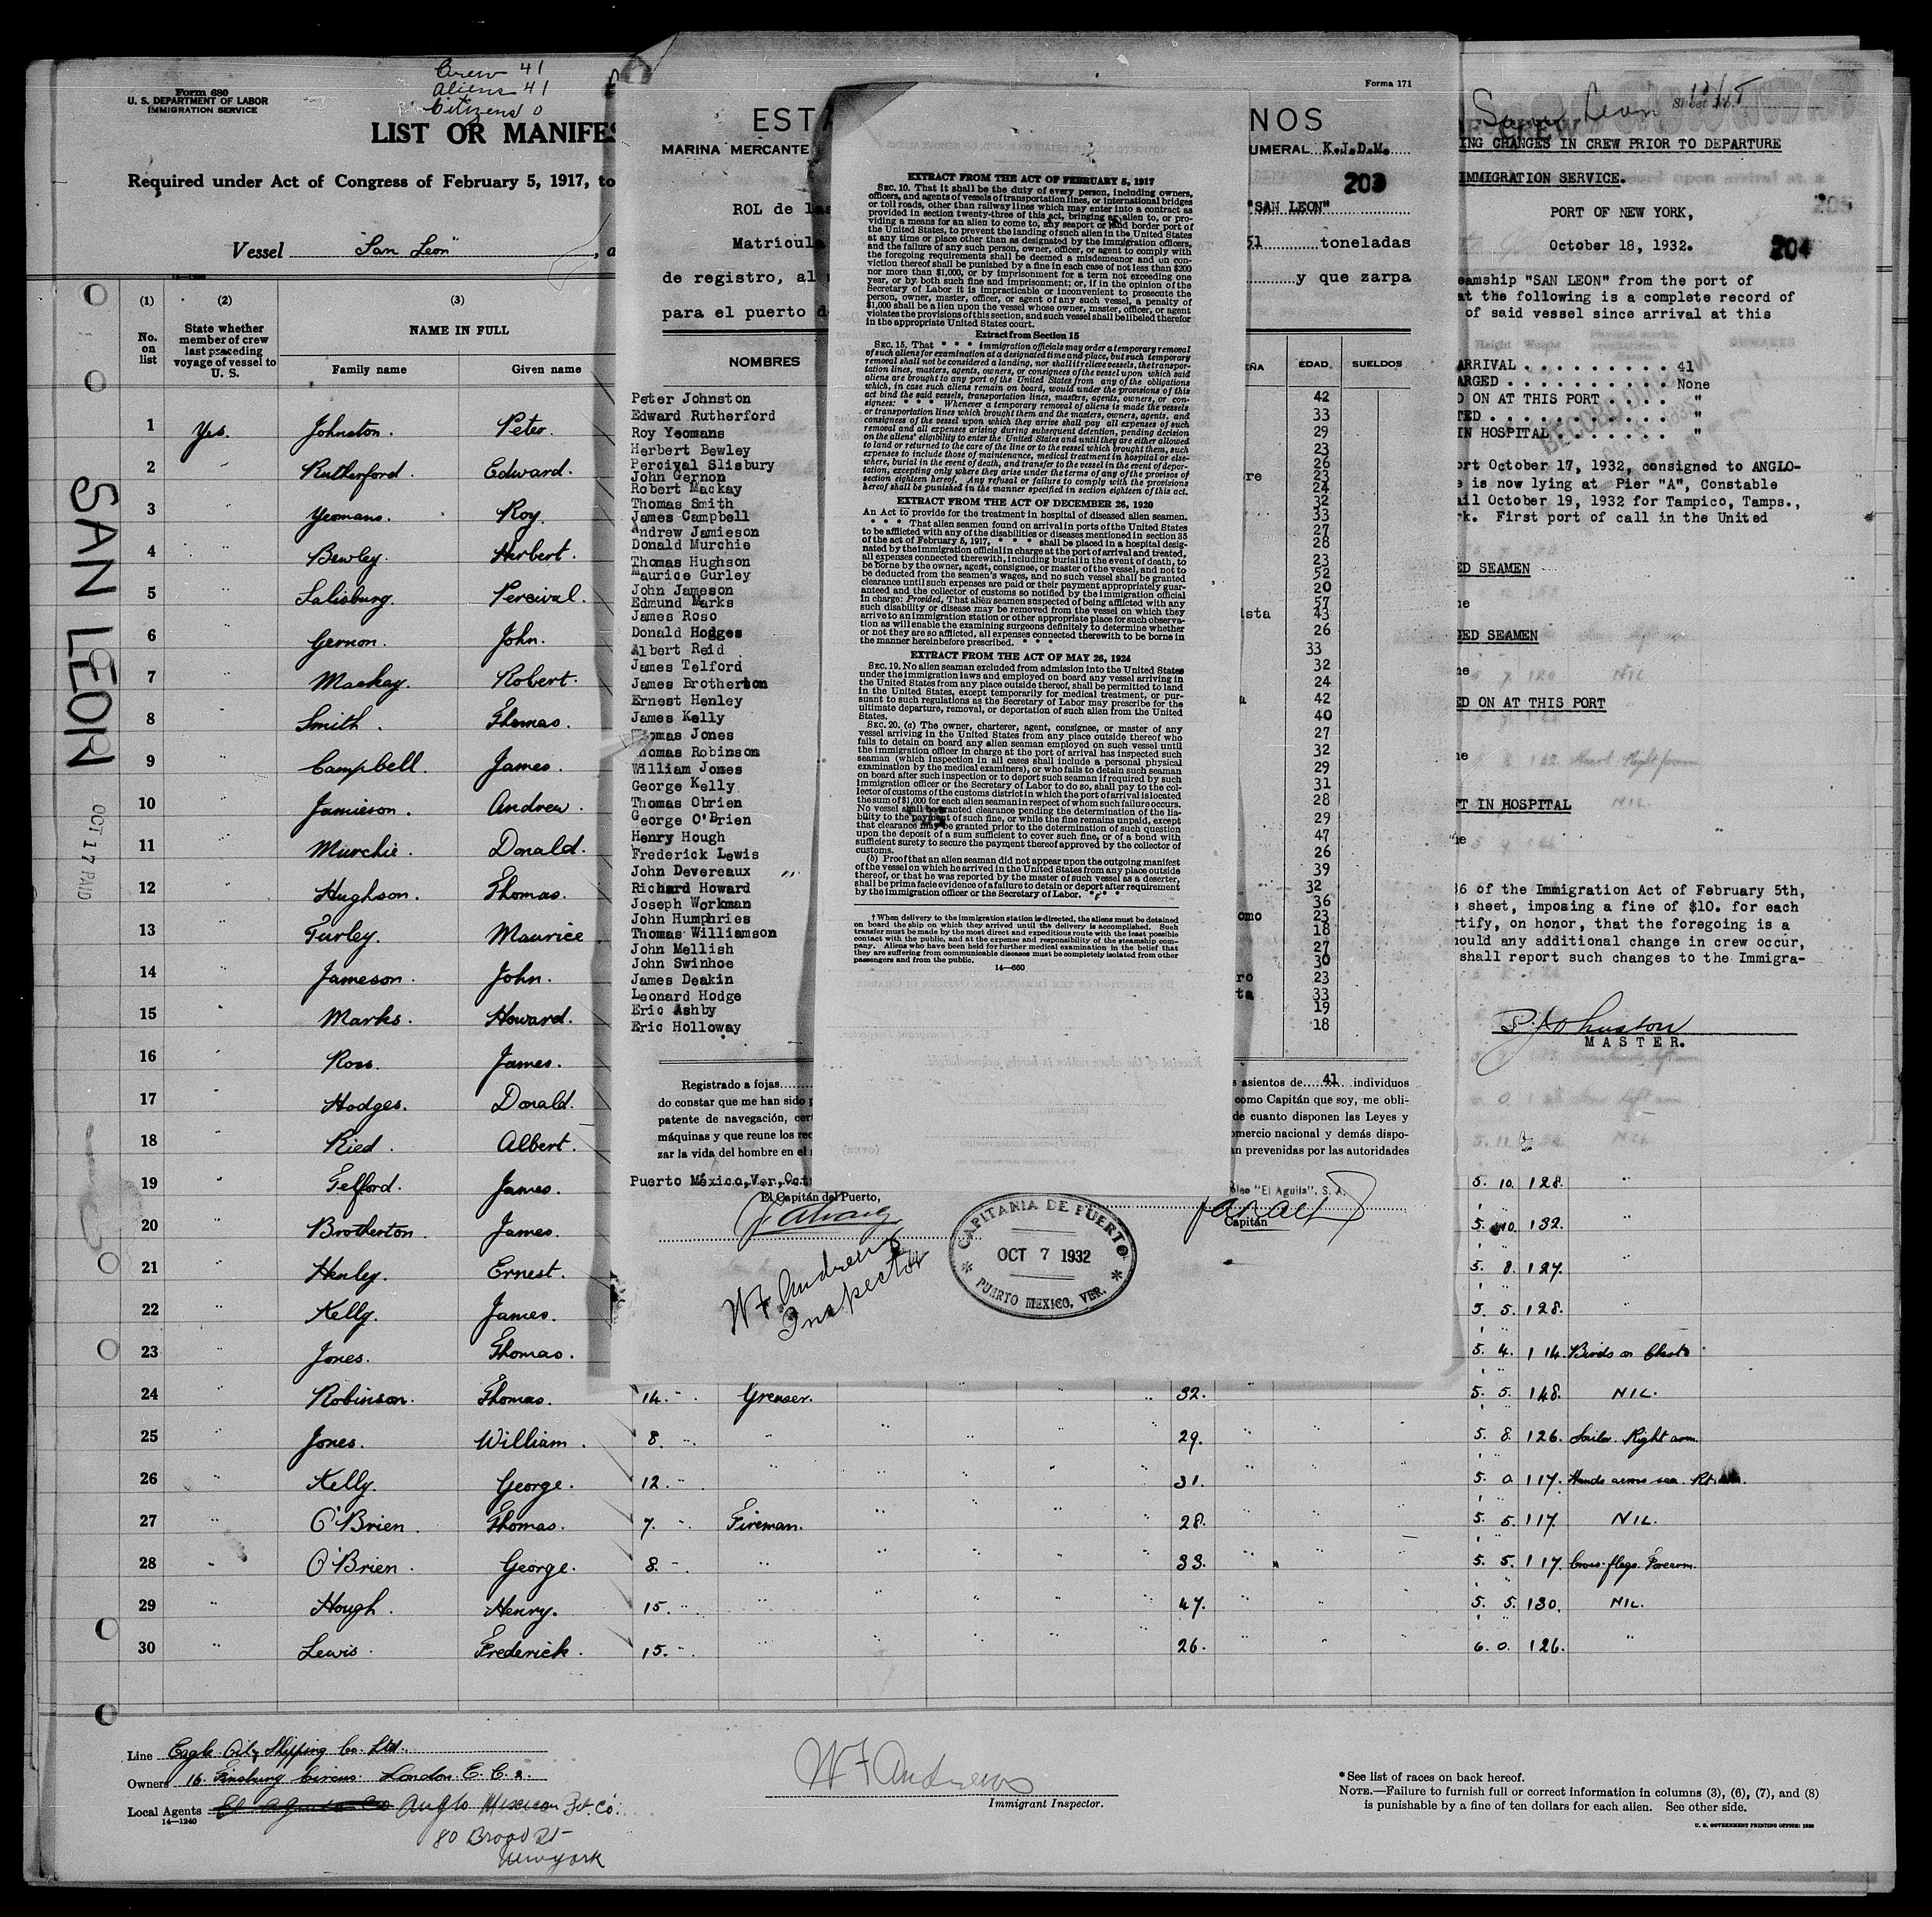 Crew 41
Aliens 41
Citizens 0
Form 680
U. S. DEPARTMENT OF LABOR
IMMIGRATION SERVICE
LIST OR MANIFES
Required under Act of Congress of February 5, 1917, to
Vessel "San Leon", a
(1) (2) (3)
No. on list
State whether member of crew last preceding voyage of vessel to U. S.
NAME IN FULL
Family name Given name
1 Yes. Johnston. Peter.
2 " Rutherford. Edward.
3 " Yeomans. Roy.
4 " Bewley. Herbert.
5 " Salisbury. Percival.
6 " Gernon. John.
7 " Mackay. Robert.
8 " Smith. Thomas.
9 " Campbell. James.
10 " Jamieson. Andrew.
11 " Murchie. Donald.
12 " Hughson. Thomas.
13 " Turley. Maurice.
14 " Jameson. John.
15 " Marks. Howard.
16 " Ross. James.
17 " Hodges. Donald.
18 " Ried. Albert.
19 " Telford. James.
20 " Brotherton. James.
21 " Henley. Ernest.
22 " Kelly. James.
23 " Jones. Thomas.
24 " Robinson. Thomas. 14. " Greaser. " 32. 5. 5. 148. NIL.
25 " Jones. William. 8. " " " " " 29. " " " 5. 8. 126. Sailor Right arm.
26 " Kelly. George. 12. " " " " " 31. " " " 5. 0 117. Hands across sea Rt.
27 " O'Brien. Thomas. 7. " Fireman. " " " " 28. " " " 5. 5. 117. NIL.
28 " O'Brien. George. 8. " " " " " 33. " " " 5. 5. 117. Cross flags Forearm.
29 " Hough. Henry. 15. " " " " " 47. " " " 5. 5. 130. NIL.
30 " Lewis. Frederick. 15. " " " " " 26. " " " 6. 0. 126. "
SAN LEON
OCT 17 PAID
Line Eagle Oil & Shipping Co. Ltd.
Owners 16. Finsbury Circus. London. E. C. 2.
Local Agents Anglo Mexican Pet. Co.
14—1240
80 Broad St
New York
W F Andrews
Immigrant Inspector.
* See list of races on back hereof.
NOTE.—Failure to furnish full or correct information in columns (3), (6), (7), and (8)
is punishable by a fine of ten dollars for each alien. See other side.
U. S. GOVERNMENT PRINTING OFFICE: 1930
Forma 171
EST
NOS
MARINA MERCANTE
UMERAL K.J.D.M.
203
ROL de las
"SAN LEON"
Matrícula
51 toneladas
de registro, al
y que zarpa
para el puerto d
NOMBRES
EÑA EDAD. SUELDOS
Peter Johnston 42
Edward Rutherford 33
Roy Yeomans 29
Herbert Bewley 23
Percival Slisbury 26
John Gernon re 23
Robert Mackay 24
Thomas Smith 32
James Campbell 33
Andrew Jamieson 27
Donald Murchie 28
Thomas Hughson 23
Maurice Gurley 52
John Jameson 20
Edmund Marks 57
James Roso ista 43
Donald Hodges 26
Albert Reid 33
James Telford 32
James Brotherton 24
Ernest Henley a 42
James Kelly 40
Thomas Jones 27
Thomas Robinson 32
William Jones 29
George Kelly 31
Thomas Obrien 28
George O'Brien 29
Henry Hough 47
Frederick Lewis 26
John Devereaux 39
Richard Howard 32
Joseph Workman 36
John Humphries omo 23
Thomas Williamson 18
John Mellish 27
John Swinhoe 30
James Deakin ro 23
Leonard Hodge ta 33
Eric Ashby 19
Eric Holloway 18
Registrado a fojas
s asientos de 41 individuos
do constar que me han sido p
como Capitán que soy, me obli-
patente de navegación, cert
de cuanto disponen las Leyes y
máquinas y que reune los rec
omercio nacional y demás dispo-
zar la vida del hombre en el
an prevenidas por las autoridades
Puerto México, Ver., Oct
oleo "El Aguila", S. A.
El Capitán del Puerto,
Capitán
W F Andrews
Inspector
CAPITANIA DE PUERTO
OCT 7 1932
PUERTO MEXICO, VER.
EXTRACT FROM THE ACT OF FEBRUARY 5, 1917
SEC. 10. That it shall be the duty of every person, including owners,
officers, and agents of vessels of transportation lines, or international bridges
or toll roads, other than railway lines which may enter into a contract as
provided in section twenty-three of this act, bringing an alien to, or pro-
viding a means for an alien to come to, any seaport or land border port of
the United States, to prevent the landing of such alien in the United States
at any time or place other than as designated by the immigration officers,
and the failure of any such person, owner, officer, or agent to comply with
the foregoing requirements shall be deemed a misdemeanor and on con-
viction thereof shall be punished by a fine in each case of not less than $200
nor more than $1,000, or by imprisonment for a term not exceeding one
year, or by both such fine and imprisonment; or, if in the opinion of the
Secretary of Labor it is impracticable or inconvenient to prosecute the
person, owner, master, officer, or agent of any such vessel, a penalty of
$1,000 shall be a lien upon the vessel whose owner, master, officer, or agent
violates the provisions of this section, and such vessel shall be libeled therefor
in the appropriate United States court.
Extract from Section 15
SEC. 15. That * * * immigration officials may order a temporary removal
of such aliens for examination at a designated time and place, but such temporary
removal shall not be considered a landing, nor shall it relieve vessels, the transpor-
tation lines, masters, agents, owners, or consignees of the vessel upon which said
aliens are brought to any port of the United States from any of the obligations
which, in case such aliens remain on board, would under the provisions of this
act bind the said vessels, transportation lines, masters, agents, owners, or con-
signees: * * * Whenever a temporary removal of aliens is made the vessels
or transportation lines which brought them and the masters, owners, agents, and
consignees of the vessel upon which they arrive shall pay all expenses of such
removal and all expenses arising during subsequent detention, pending decision
on the aliens' eligibility to enter the United States and until they are either allowed
to land or returned to the care of the line or to the vessel which brought them, such
expenses to include those of maintenance, medical treatment in hospital or else-
where, burial in the event of death, and transfer to the vessel in the event of depor-
tation, excepting only where they arise under the terms of any of the provisos of
section eighteen hereof. Any refusal or failure to comply with the provisions
hereof shall be punished in the manner specified in section eighteen of this act.
EXTRACT FROM THE ACT OF DECEMBER 26, 1920
An Act to provide for the treatment in hospital of diseased alien seamen.
* * * That alien seamen found on arrival in ports of the United States
to be afflicted with any of the disabilities or diseases mentioned in section 35
of the act of February 5, 1917, * * * shall be placed in a hospital desig-
nated by the immigration official in charge at the port of arrival and treated,
all expenses connected therewith, including burial in the event of death, to
be borne by the owner, agent, consignee, or master of the vessel, and not to
be deducted from the seamen's wages, and no such vessel shall be granted
clearance until such expenses are paid or their payment appropriately guar-
anteed and the collector of customs so notified by the immigration official
in charge: Provided, That alien seamen suspected of being afflicted with any
such disability or disease may be removed from the vessel on which they
arrive to an immigration station or other appropriate place for such observa-
tion as will enable the examining surgeons definitely to determine whether
or not they are so afflicted, all expenses connected therewith to be borne in
the manner hereinbefore prescribed. * * *
EXTRACT FROM THE ACT OF MAY 26, 1924
SEC. 19. No alien seaman excluded from admission into the United States
under the immigration laws and employed on board any vessel arriving in
the United States from any place outside thereof, shall be permitted to land
in the United States, except temporarily for medical treatment, or pur-
suant to such regulations as the Secretary of Labor may prescribe for the
ultimate departure, removal, or deportation of such alien from the United
States.
SEC. 20. (a) The owner, charterer, agent, consignee, or master of any
vessel arriving in the United States from any place outside thereof who
fails to detain on board any alien seaman employed on such vessel until
the immigration officer in charge at the port of arrival has inspected such
seaman (which inspection in all cases shall include a personal physical
examination by the medical examiners), or who fails to detain such seaman
on board after such inspection or to deport such seaman if required by such
immigration officer or the Secretary of Labor to do so, shall pay to the col-
lector of customs of the customs district in which the port of arrival is located
the sum of $1,000 for each alien seaman in respect of whom such failure occurs.
No vessel shall be granted clearance pending the determination of the lia-
bility to the payment of such fine, or while the fine remains unpaid, except
that clearance may be granted prior to the determination of such question
upon the deposit of a sum sufficient to cover such fine, or of a bond with
sufficient surety to secure the payment thereof approved by the collector of
customs.
(b) Proof that an alien seaman did not appear upon the outgoing manifest
of the vessel on which he arrived in the United States from any place outside
thereof, or that he was reported by the master of such vessel as a deserter,
shall be prima facie evidence of a failure to detain or deport after requirement
by the immigration officer or the Secretary of Labor. * * *
† When delivery to the immigration station is directed, the aliens must be detained
on board the ship on which they arrived until the delivery is accomplished. Such
transfer must be made by the most direct and expeditious route with the least possible
contact with the public, and at the expense and responsibility of the steamship com-
pany. Aliens who have been held for further medical examination in the belief that
they are suffering from communicable diseases must be completely isolated from other
passengers and from the public.
14—660
San Leon
CREW
Sheet No.
ING CHANGES IN CREW PRIOR TO DEPARTURE
IMMIGRATION SERVICE.
PORT OF NEW YORK,
205
October 18, 1932.
204
eamship "SAN LEON" from the port of
at the following is a complete record of
of said vessel since arrival at this
ARRIVAL . . . . . . . . . 41
ARGED . . . . . . . . . . None
D ON AT THIS PORT . . . . "
TED . . . . . . . . . . . "
IN HOSPITAL . . . . . . . "
ort October 17, 1932, consigned to ANGLO-
e is now lying at Pier "A", Constable
ail October 19, 1932 for Tampico, Tamps.,
rk. First port of call in the United
ED SEAMEN
ne
GED SEAMEN
ne
ED ON AT THIS PORT
ne
FT IN HOSPITAL
ne
36 of the Immigration Act of February 5th,
s sheet, imposing a fine of $10. for each
rtify, on honor, that the foregoing is a
hould any additional change in crew occur,
shall report such changes to the Immigra-
P. Johnston
MASTER.
5. 10. 128. "
5. 10. 132. "
5. 8. 127. "
5. 5. 128. "
5. 4. 114. Birds on Chest.